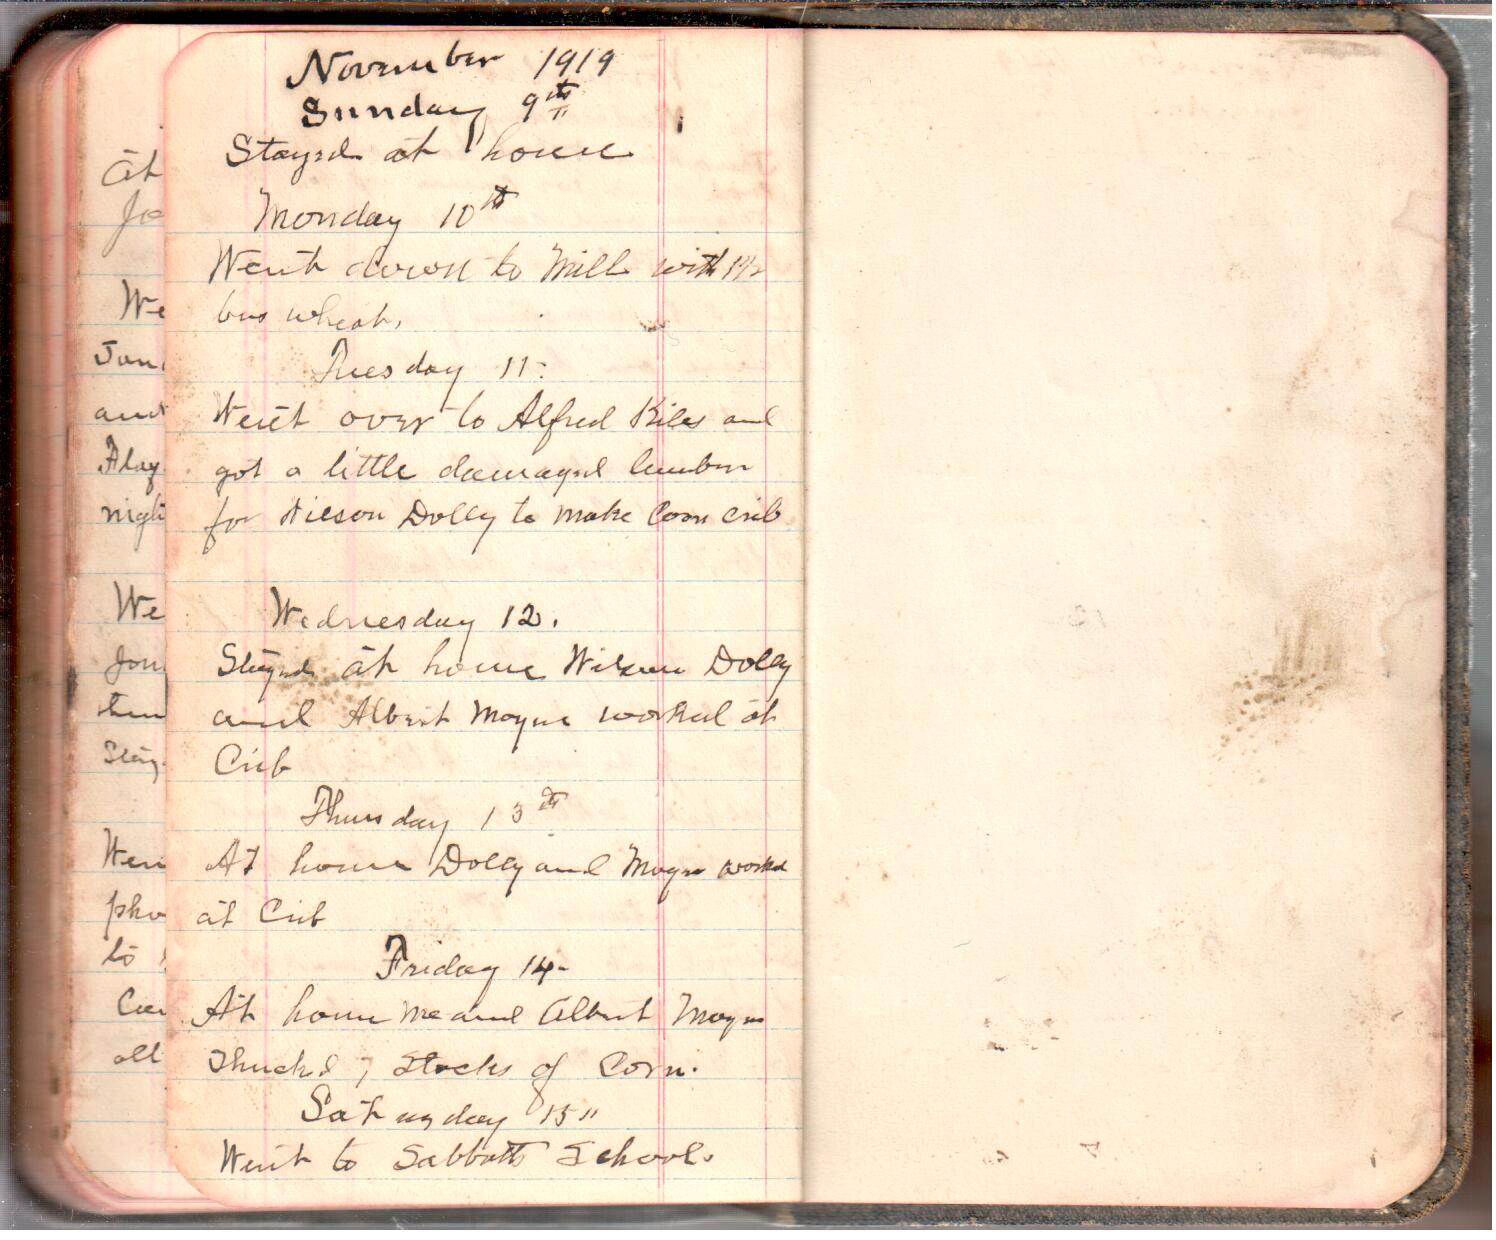 November 1919
Sunday 9th
Stayed at home
Monday 10th
Went down to Mill with 1 1/2
bus wheat.
Tuesday 11.
Went over to Alfred Kiles and
got a little damaged lumber
for Wilson Dolly to make Corn Crib
Wednesday 12.
Stayed at home Wilson Dolly
and Albert Moyer worked at
Crib
Thursday 13th
At home Dolly and Moyer worked
at Crib
Friday 14-
At home me and Albert Moyer
Shucked 7 Stocks of Corn.
Saturday 15"
Went to Sabbath School.
At
We
and
night
We
to
all